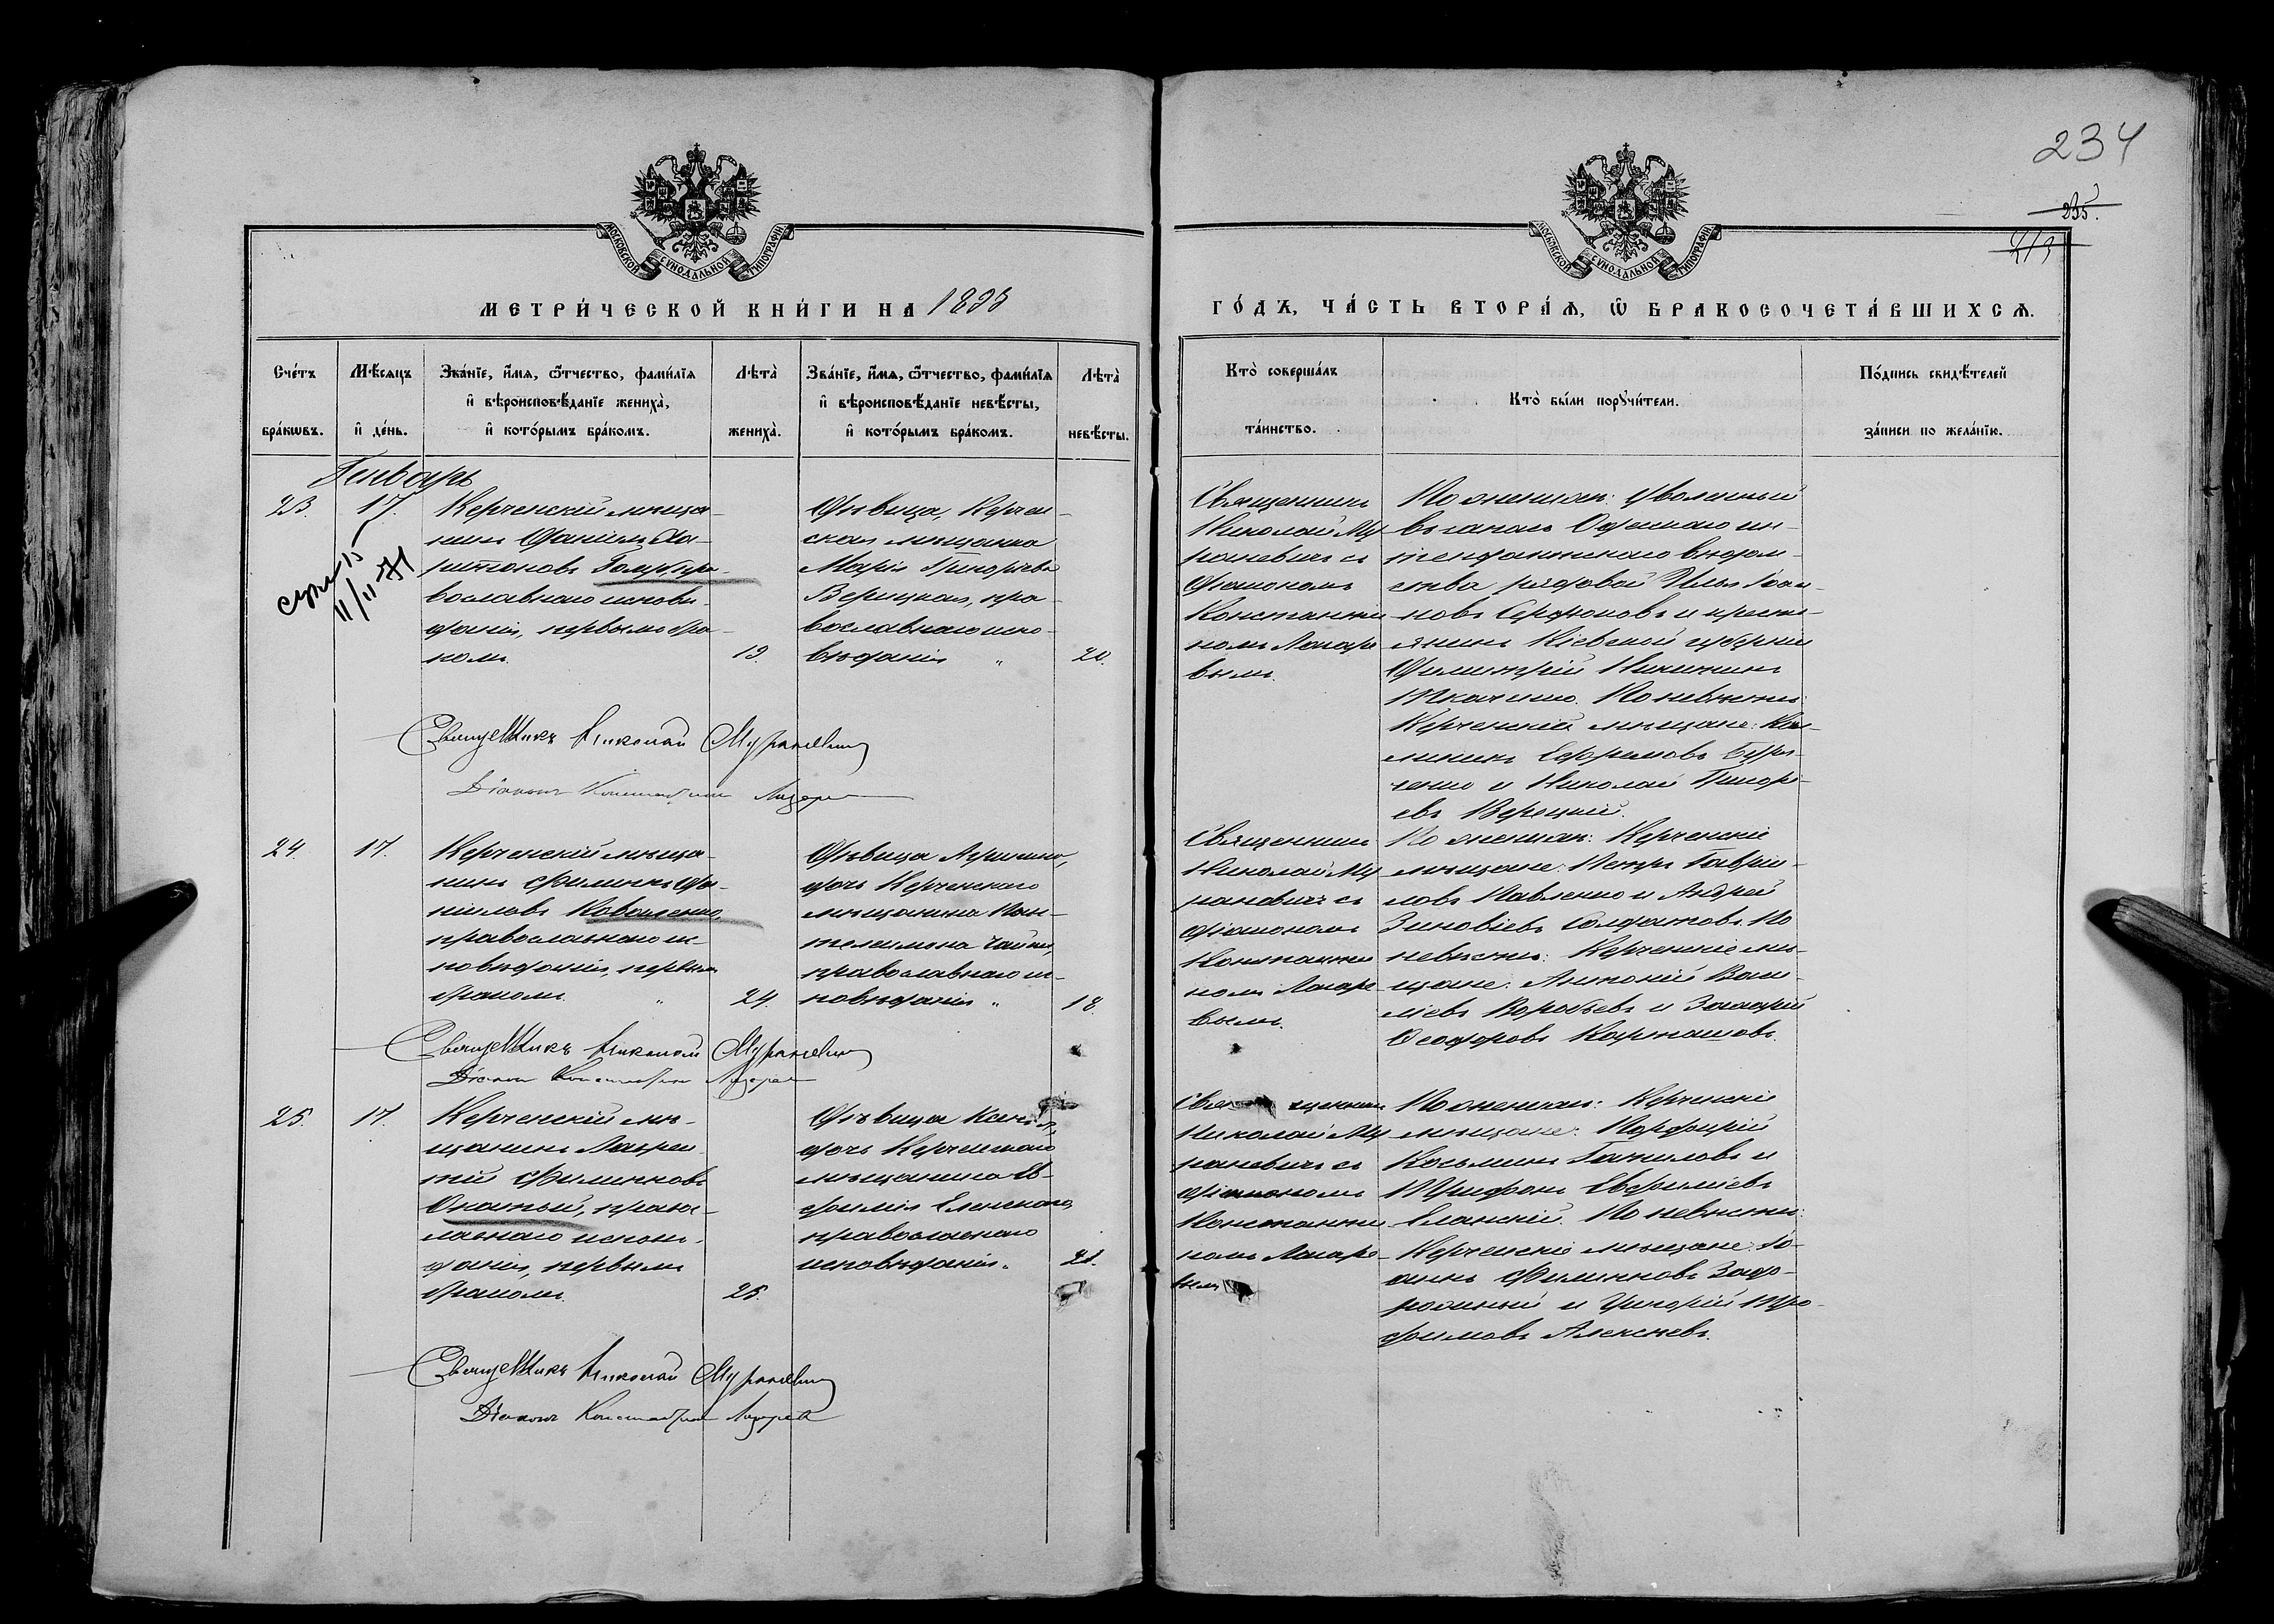 234
235.
213
МОСКОВСКОЙ СѴНОДАЛЬНОЙ ТИПОГРАФІИ
МОСКОВСКОЙ СѴНОДАЛЬНОЙ ТИПОГРАФІИ
МЕТРИ́ЧЕСКОЙ КНИ́ГИ НА 1893
ГО́ДЪ, ЧА́СТЬ ВТОРА́Ѧ, Ѽ БРАКОСОЧЕТА́ВШИХСѦ.
Сче́тъ
бра́кѡвъ.
Мѣ́сѧцъ
и҆ де́нь.
Зва́нїе, и҆́мѧ, ѻ҆́тчество, фами́лїѧ
и҆ вѣроисповѣ́данїе жениха̀,
и҆ кото́рымъ бра́комъ.
Лѣта̀
жениха̀.
Зва́нїе, и҆́мѧ, ѻ҆́тчество, фами́лїѧ
и҆ вѣроисповѣ́данїе невѣ́сты,
и҆ кото́рымъ бра́комъ.
Лѣта̀
невѣ́сты.
Кто̀ соверша́лъ
та́инство.
Кто̀ бы́ли порꙋчи́тели.
По́дпись свидѣ́телей
за́писи по жела́нїю.
Генварь
23.
17.
11/II 71
Керченскій мѣща-
нинъ Даніилъ Ха-
ритоновъ пра-
вославнаго испове-
данія, первымъ бра-
комъ.
19.
Дѣвица, Керчен-
ская мѣщанка
Марія Григорьева
Верецкая, пра-
вославнаго испо-
вѣданія "
20.
Священникъ
Николай Му
раневичъ съ
діакономъ
Константи
номъ Лазаре
вымъ.
По женихѣ: уволенный
въ запасъ Одесскаго ин-
тендантскаго вѣдом-
ства рядовой Илья Іоан-
новъ и кресть-
янинъ Кіевской губерніи
Димитрій Никитинъ
Ткаченко. По невѣстѣ:
Керченскіе мѣщане: Ка-
линикъ Ефремовъ
и Николай Григорь-
евъ Верецкій.
Священникъ Николай Мураневичъ
Діаконъ Константинъ Лазаревъ
24.
17.
Керченскій мѣща-
нинъ Филиппъ Да-
ніиловъ Коваленко
православнаго ис-
повѣданія, первымъ
бракомъ. "
24.
Дѣвица
дочь Керченскаго
мѣщанина Пан-
телеимона
православнаго ис-
повѣданія "
18.
Священникъ
Николай Му
раневичъ съ
діакономъ
Константи
номъ Лазаре
вымъ.
По женихѣ: Керченскіе
мѣщане: Петръ Гаврии-
ловъ Павленко и Андрей
Зиновіевъ Солдатовъ. По
невѣстѣ: Керченскіе мѣ-
щане: Антоній Васи-
ліевъ Воробьевъ и Захарій
Ѳеодоровъ Карташовъ.
Священникъ Николай Мураневичъ
Діаконъ Константинъ Лазаревъ
25.
17.
Керченскій мѣ-
щанинъ Лаврен-
тій Филипповъ
православ-
лавнаго испове-
данія, первымъ
бракомъ.
25.
Дѣвица
дочь Керченскаго
мѣщанина Ев-
фимія Еленскаго,
православнаго
исповѣданія.
21.
Священникъ
Николай Му
раневичъ съ
діакономъ
Константи
номъ Лазаре
вымъ
По женихѣ: Керченскіе
мѣщане: Порфирій
Косьминъ Гаврилов и
Трифонъ Евфиміевъ
Еланскій. По невѣстѣ:
Керченскіе мѣщане: Іо-
аннъ Филипповъ Задо-
рожный и Григорій Тро-
фимовъ Алексѣевъ.
Священникъ Николай Мураневичъ
Діаконъ Константинъ Лазаревъ